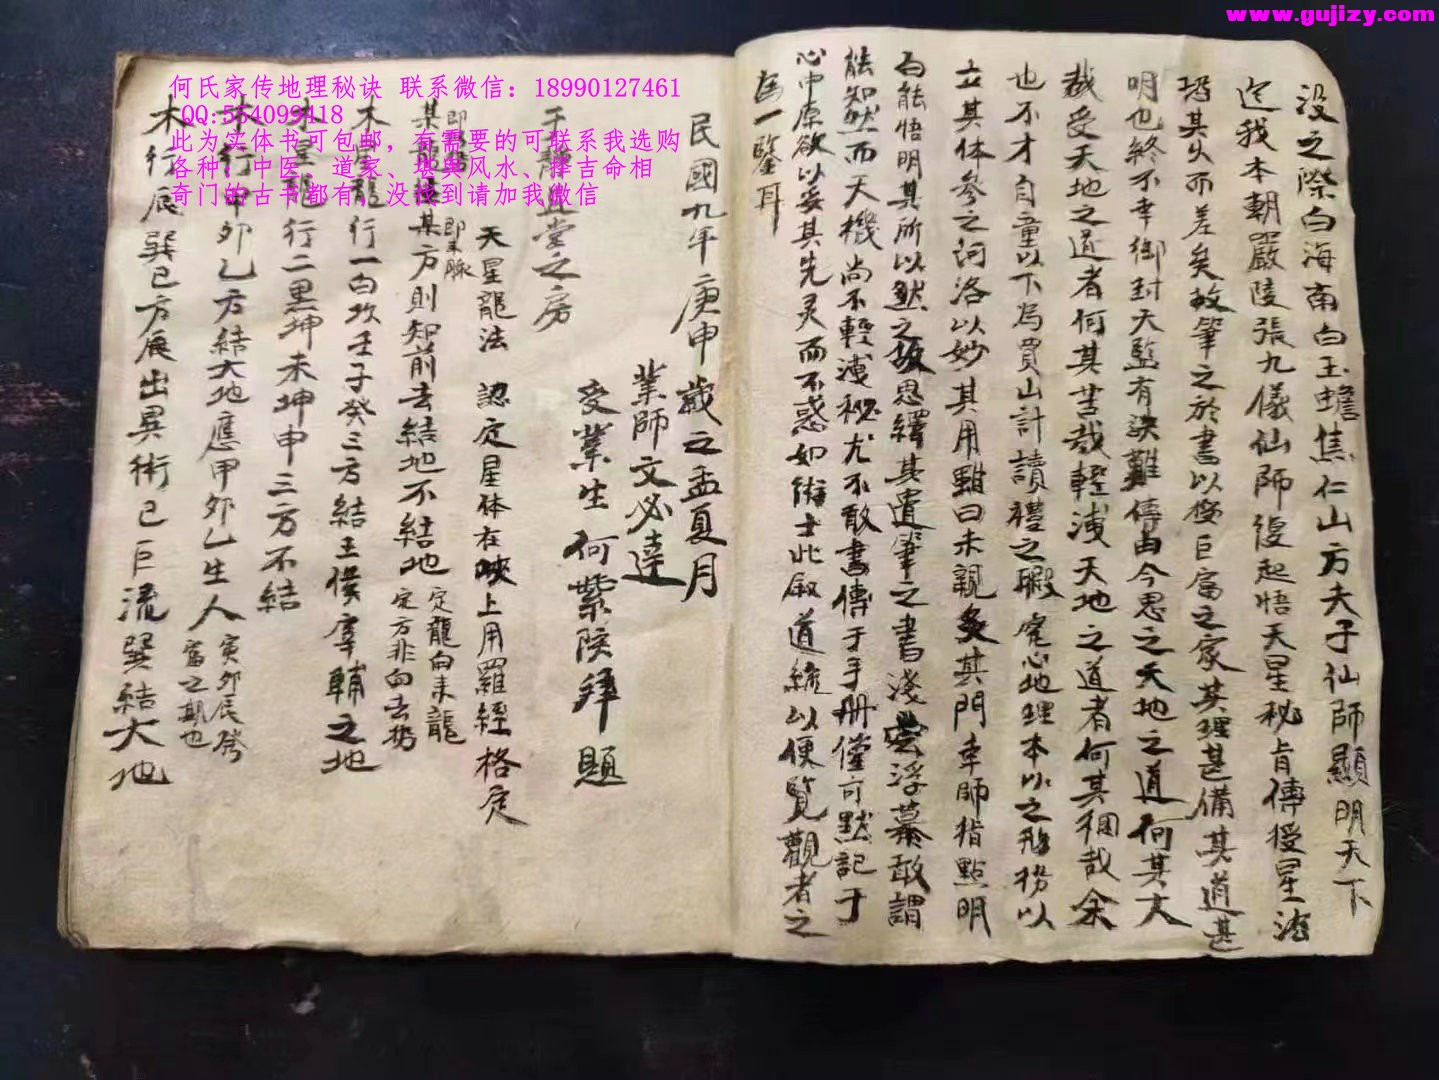 www.gujizy.com
何氏家传地理秘诀 联系微信：18990127461
QQ:554099418
此为实体书可包邮，有需要的可联系我选购
各种、中医、道家、堪舆风水、择吉命相
奇门的古书都有，没找到请加我微信
没之際白海南白玉蟾焦仁山方夫子仙師顯明天下
迄我本朝嚴陵張九儀仙師復起悟天星秘肯傳授星法
其久而差矣故筆之於書以授巨富之家其理甚備其道甚
明也終不幸御封天監有訣難傳由今思之天地之道何其大
哉受天地之道者何其苦哉輕洩天地之道者何其稠哉余
也不才自童以下為買山計讀禮之暇究心地理本以之形務以
立其体参之河洛以妙其用黜曰未親炙其門幸師指點明
而能悟明其所以然之故思繹其遺筆之書淺嘗浮慕敢謂
能知然而天機尚不輕洩秘尤不敢書傳于手册僅可默記于
心中原欲以妥其先灵而不惑如術士此叙道統以便覧觀者之
為一鑒耳
民國九年庚申歲之孟夏月
業師文必達
受業生何紫陔拜題
于静宜堂之房
天星龍法 認定星体在峽上用羅經格定
某龍後某方則知前去結地不結地 定龍向来龍 定方非向去脈
木星龍行一白坎壬子癸三方結王侯宰輔之地
木星龍行二黑坤未坤申三方不結
木行甲卯乙方結大地應甲卯乙生人 寅卯辰發 富之期也
木行辰巽巳方展出異術巳巨流巽結大地